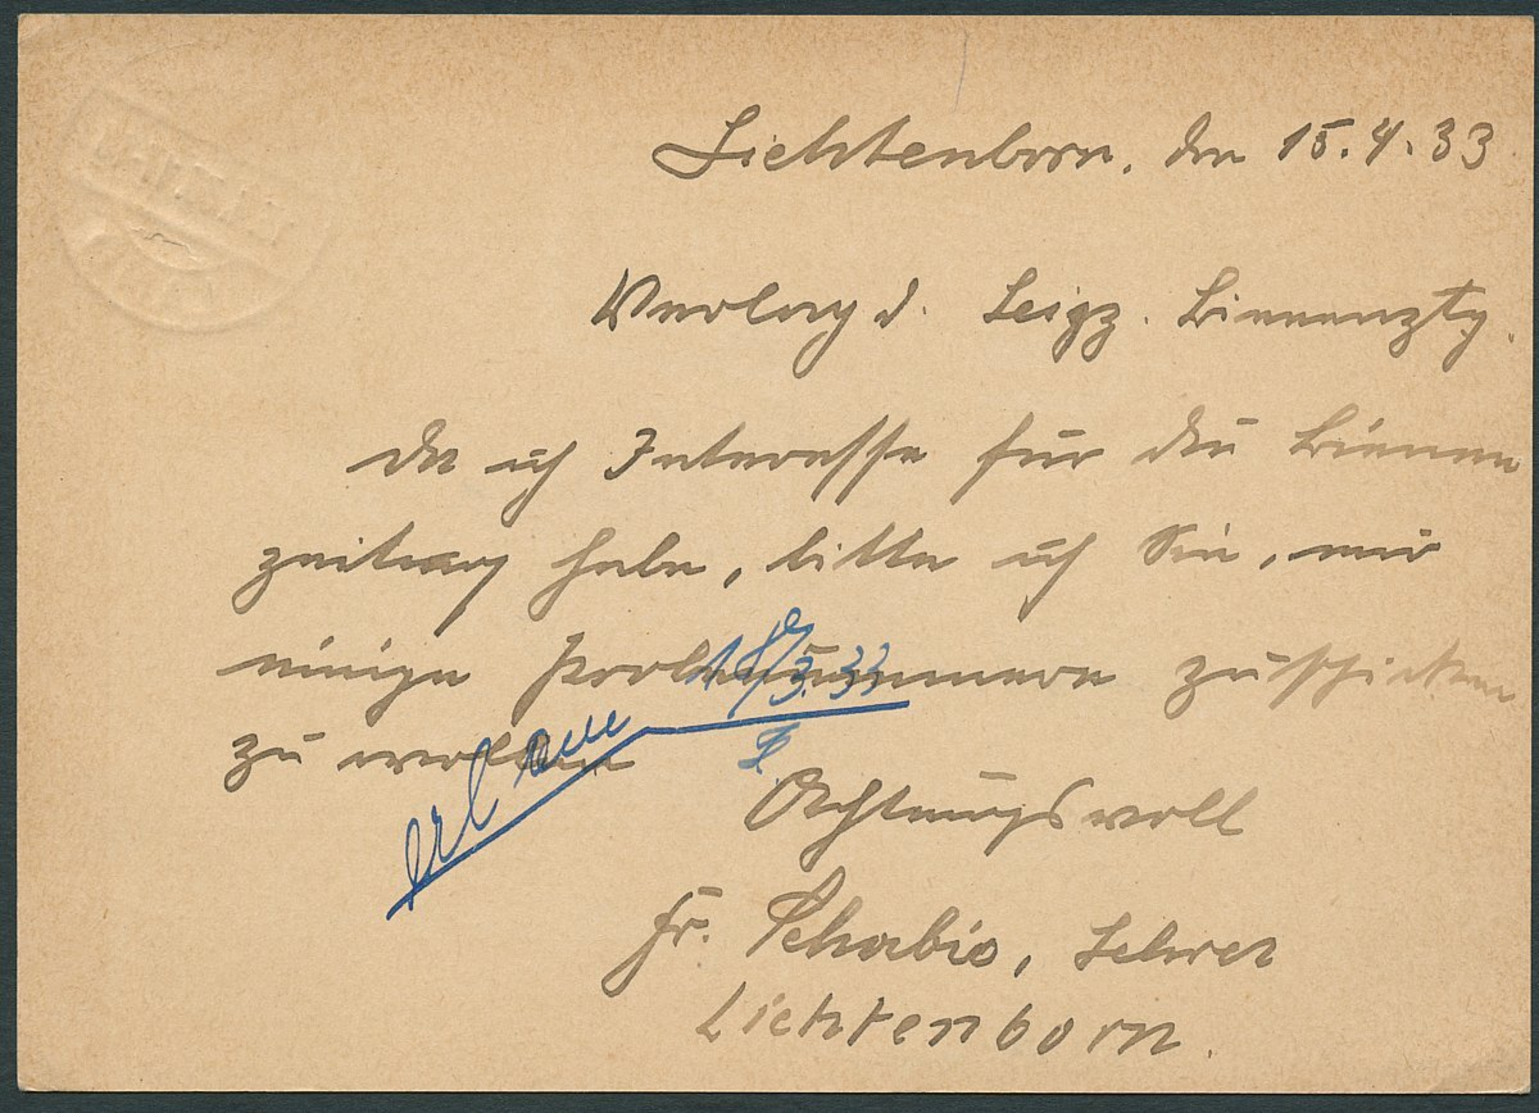 Lichtenborn, den 15.4.33
Verlag d. Leipz. Bienenztg.
Da ich Interesse für die Bienen
zeitung habe, bitte ich Sie, mir
einige Probenummern zuschicken
zu wollen
18/3.33
Achtungsvoll
Fr. Schabio, Lehrer
Lichtenborn.